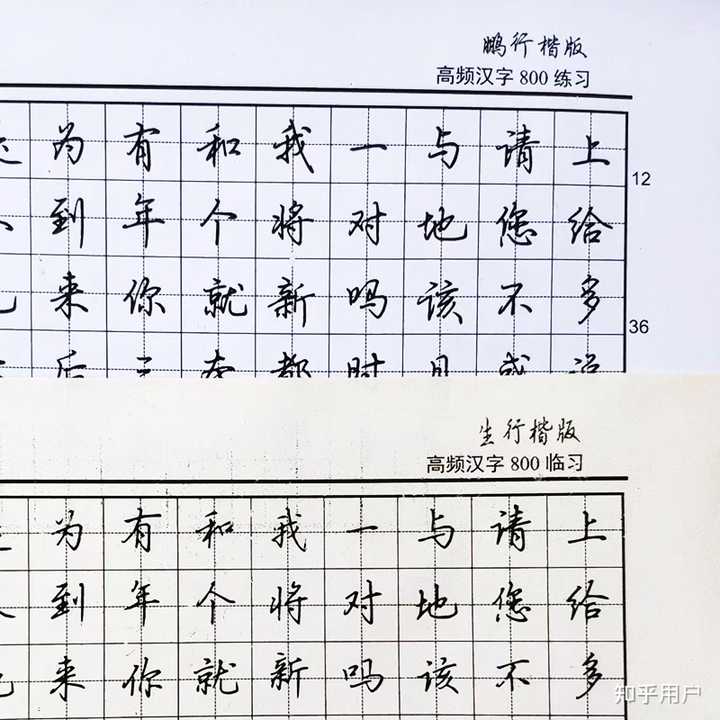 鹏行楷版
高频汉字 800 练习
为有和我一与请上
12
到年个将对地您给
来你就新吗该不多
36
生行楷版
高频汉字 800 临习
为有和我一与请上
到年个将对地您给
来你就新吗该不多
知乎用户